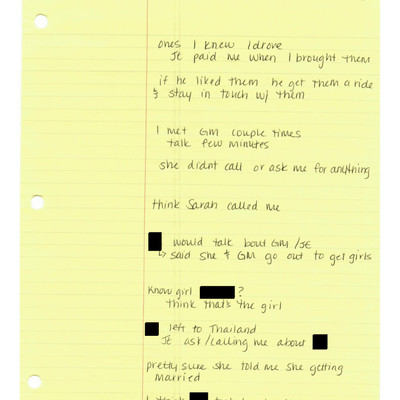 ones I knew I drove
JE paid me when I brought them
if he liked them he get them a ride
& stay in touch w/ them
I met GM couple times
talk few minutes
she didnt call or ask me for anything
think Sarah called me
would talk bout GM/JE
↳ said she & GM go out to get girls
Know girl ?
think thats the girl
left to Thailand
JE ask/calling me about
pretty sure she told me she getting
married